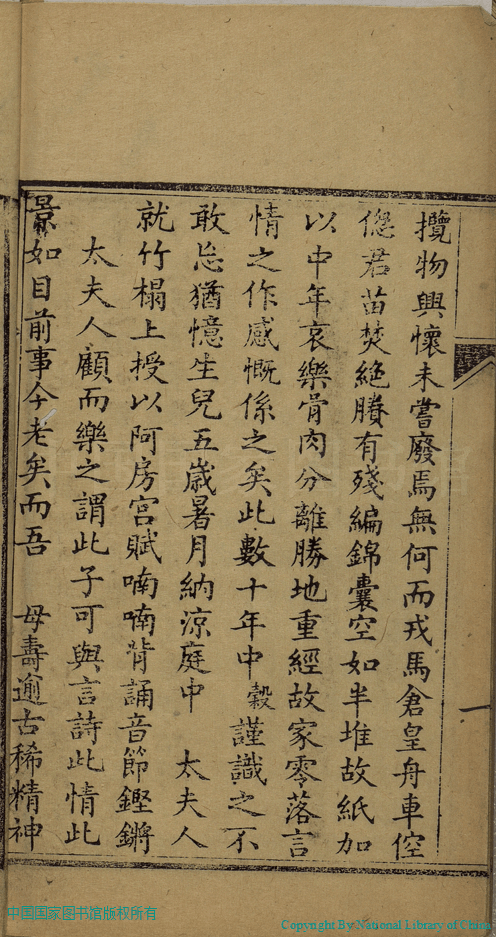 攬物興懷未嘗廢焉無何而戎馬倉皇舟車倥
傯君苗焚絶賸有殘編錦囊空如半堆故紙加
以中年哀樂骨肉分離勝地重經故家零落言
情之作感慨係之矣此數十年中榖謹識之不
敢忘猶憶生兒五歲暑月納涼庭中 太夫人
就竹榻上授以阿房宮賦喃喃背誦音節鏗鏘
太夫人顧而樂之謂此子可與言詩此情此
景如目前事今老矣而吾 母壽逾古稀精神
一
中国国家图书馆版权所有
Copyright By National Library of China